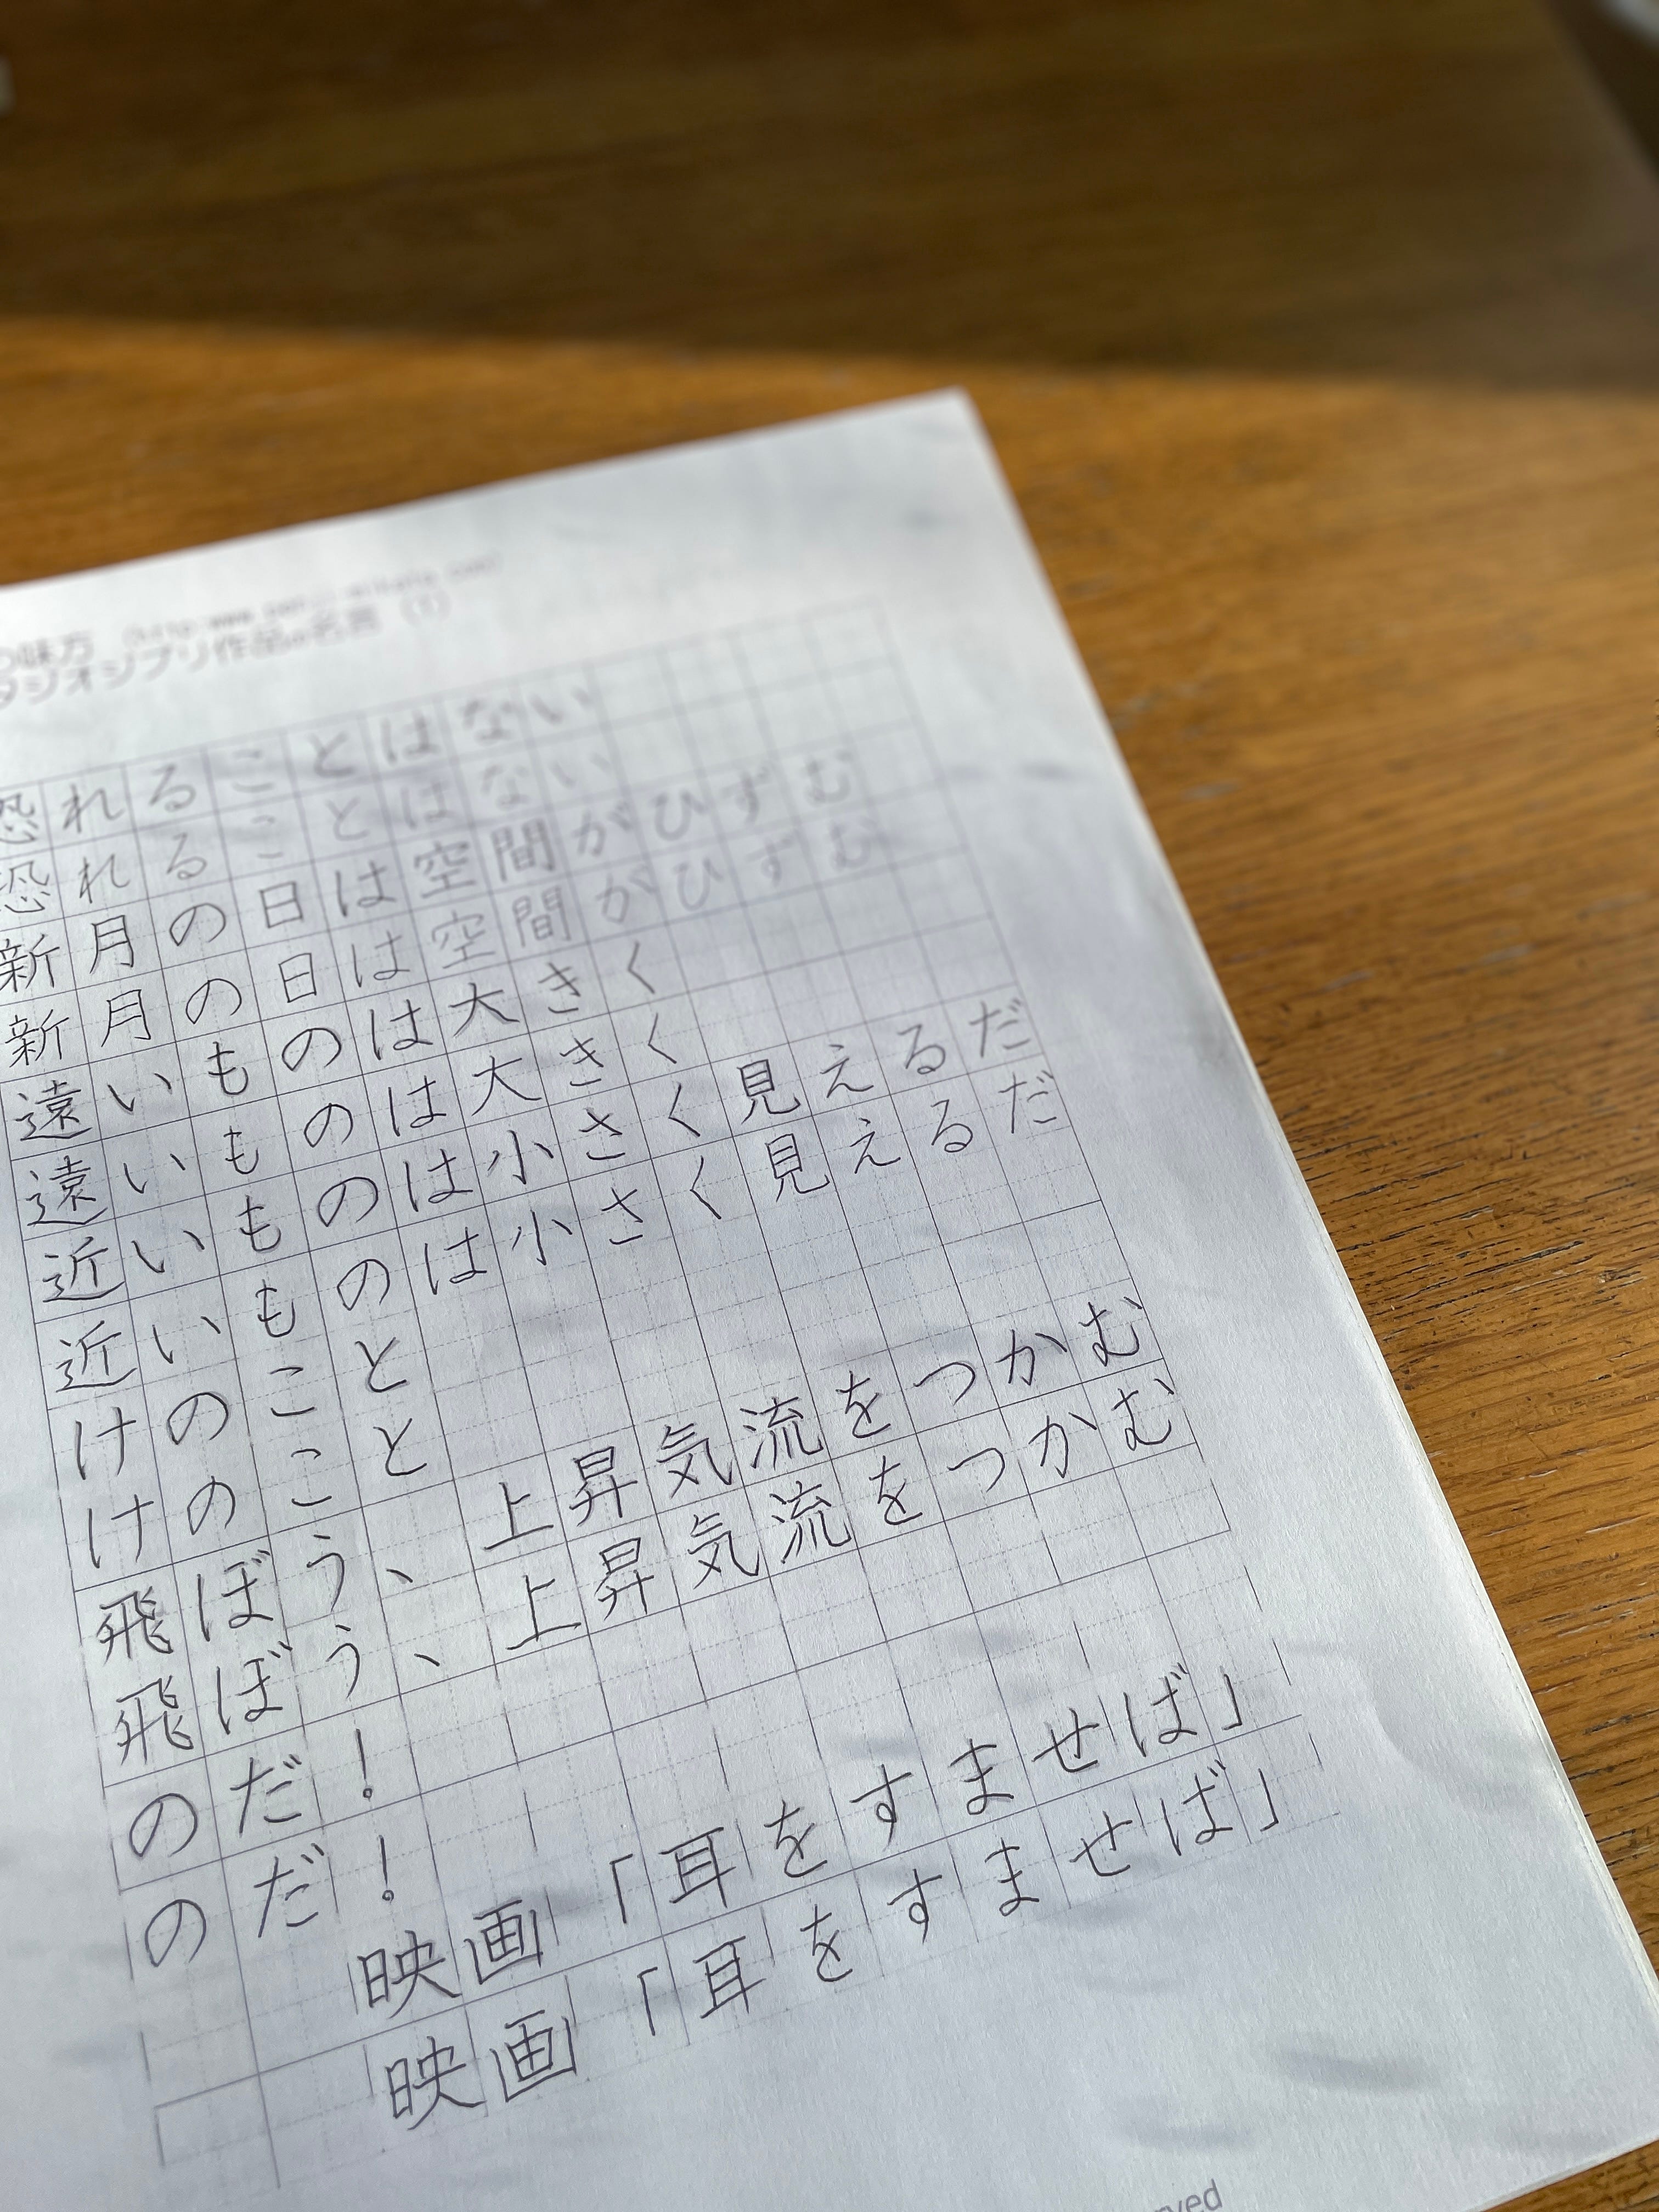 の味方
タジオジブリ作品の名言 (1)
恐れることはない
恐れることはない
新月の日は空間がひずむ
新月の日は空間がひずむ
遠いものは大きく
遠いものは大きく
近いものは小さく見えるだ
近いものは小さく見えるだ
けのこと
けのこと
飛ぼう、上昇気流をつかむ
飛ぼう、上昇気流をつかむ
のだ!
のだ!
映画「耳をすませば」
映画「耳をすませば」
rved